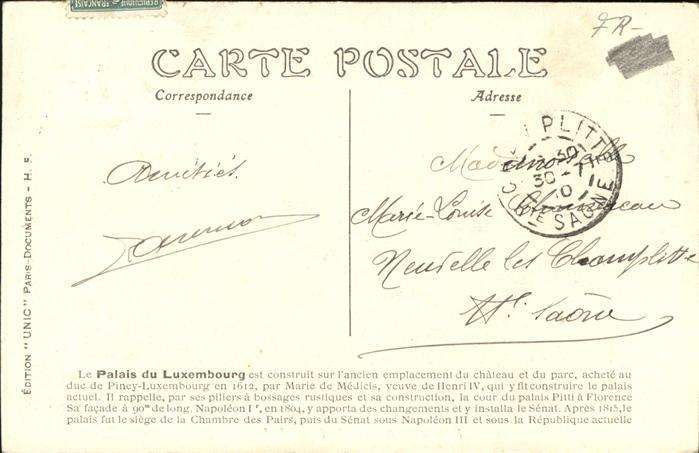 RÉPUBLIQUE FRANÇAISE
FR-
CARTE POSTALE
Correspondance
Adresse
PLITTE
30
30 - 11
10
Hte SAÔNE
Amitiés
Mademoiselle
Marie-Louise
Neuvelle les Champlitte
Hte Saône
ÉDITION "UNIC" PARIS-DOCUMENTS - H. S.
Le Palais du Luxembourg est construit sur l'ancien emplacement du château et du parc, acheté au
duc de Piney-Luxembourg en 1612, par Marie de Médicis, veuve de Henri IV, qui y fit construire le palais
actuel. Il rappelle, par ses piliers à bossages rustiques et sa construction, la cour du palais Pitti à Florence
Sa façade à 90m de long. Napoléon Ier, en 1804, y apporta des changements et y installa le Sénat. Après 1815, le
palais fut le siège de la Chambre des Pairs, puis du Sénat sous Napoléon III et sous la République actuelle